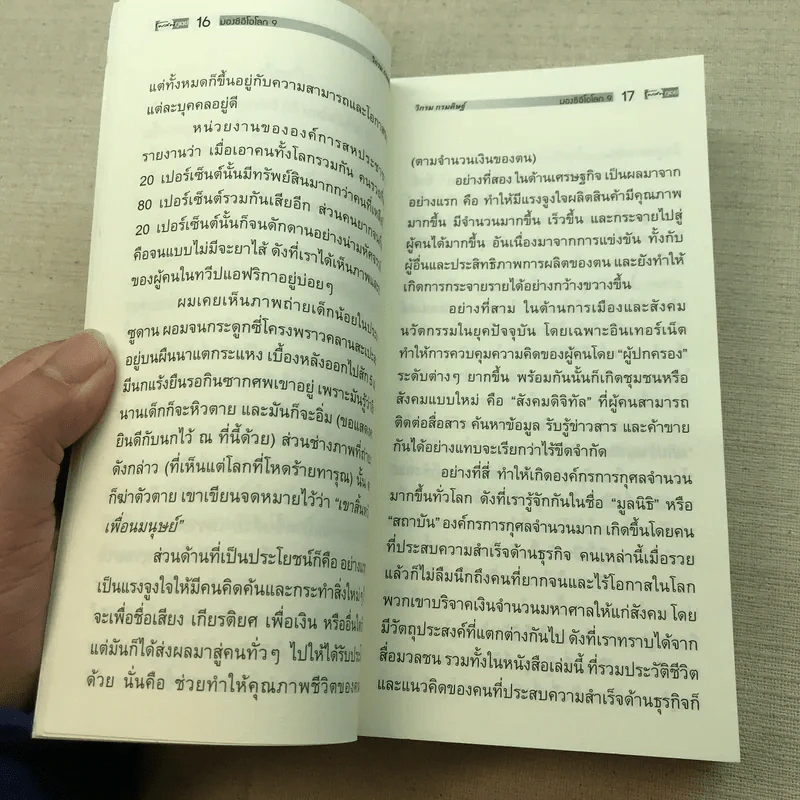 16 มองซีอีโอโลก 9
แต่ทั้งหมดก็ขึ้นอยู่กับความสามารถและโอกาส
แต่ละบุคคลอยู่ดี
หน่วยงานขององค์การสหประชา
รายงานว่า เมื่อเอาคนทั้งโลกรวมกัน คนรวย
20 เปอร์เซ็นต์นั้นมีทรัพย์สินมากกว่าคนที่
80 เปอร์เซ็นต์รวมกันเสียอีก ส่วนคนยากจน
20 เปอร์เซ็นต์นั้นก็จนดักดานอย่างน่ามหัศ
คือจนแบบไม่มีจะยาไส้ ดังที่เราได้เห็นภาพ
ของผู้คนในทวีปแอฟริกาอยู่บ่อยๆ
ผมเคยเห็นภาพถ่ายเด็กน้อยใน
ซูดาน ผอมจนกระดูกซี่โครงพราวคลาน
อยู่บนผืนนาแตกระแหง เบื้องหลังออกไปสัก
มีนกแร้งยืนรอกินซากศพเขาอยู่ เพราะมันรู้ว่า
นานเด็กก็จะหิวตาย และมันก็จะอิ่ม (ขอแสดง
ยินดีกับนกไว้ ณ ที่นี้ด้วย) ส่วนช่างภาพที่ถ่าย
ดังกล่าว (ที่เห็นแต่โลกที่โหดร้ายทารุณ) นั้น
ก็ฆ่าตัวตาย เขาเขียนจดหมายไว้ว่า “เขาสิ้น
เพื่อนมนุษย์”
ส่วนด้านที่เป็นประโยชน์ก็คือ อย่างแรก
เป็นแรงจูงใจให้มีคนคิดค้นและกระทำสิ่งใหม่ๆ
จะเพื่อชื่อเสียง เกียรติยศ เพื่อเงิน หรืออื่นใด
แต่มันก็ได้ส่งผลมาสู่คนทั่วๆ ไปให้ได้รับประ
ด้วย นั่นคือ ช่วยทำให้คุณภาพชีวิตของคน
วิกรม กรมดิษฐ์ มองซีอีโอโลก 9 17
(ตามจำนวนเงินของตน)
อย่างที่สอง ในด้านเศรษฐกิจ เป็นผลมาจาก
อย่างแรก คือ ทำให้มีแรงจูงใจผลิตสินค้ามีคุณภาพ
มากขึ้น มีจำนวนมากขึ้น เร็วขึ้น และกระจายไปสู่
ผู้คนได้มากขึ้น อันเนื่องมาจากการแข่งขัน ทั้งกับ
ผู้อื่นและประสิทธิภาพการผลิตของตน และยังทำให้
เกิดการกระจายรายได้อย่างกว้างขวางขึ้น
อย่างที่สาม ในด้านการเมืองและสังคม
นวัตกรรมในยุคปัจจุบัน โดยเฉพาะอินเทอร์เน็ต
ทำให้การควบคุมความคิดของผู้คนโดย “ผู้ปกครอง”
ระดับต่างๆ ยากขึ้น พร้อมกันนั้นก็เกิดชุมชนหรือ
สังคมแบบใหม่ คือ “สังคมดิจิทัล” ที่ผู้คนสามารถ
ติดต่อสื่อสาร ค้นหาข้อมูล รับรู้ข่าวสาร และค้าขาย
กันได้อย่างแทบจะเรียกว่าไร้ขีดจำกัด
อย่างที่สี่ ทำให้เกิดองค์กรการกุศลจำนวน
มากขึ้นทั่วโลก ดังที่เรารู้จักกันในชื่อ “มูลนิธิ” หรือ
“สถาบัน” องค์กรการกุศลจำนวนมาก เกิดขึ้นโดยคน
ที่ประสบความสำเร็จด้านธุรกิจ คนเหล่านี้เมื่อรวย
แล้วก็ไม่ลืมนึกถึงคนที่ยากจนและไร้โอกาสในโลก
พวกเขาบริจาคเงินจำนวนมหาศาลให้แก่สังคม โดย
มีวัตถุประสงค์ที่แตกต่างกันไป ดังที่เราทราบได้จาก
สื่อมวลชน รวมทั้งในหนังสือเล่มนี้ ที่รวมประวัติชีวิต
และแนวคิดของคนที่ประสบความสำเร็จด้านธุรกิจก็